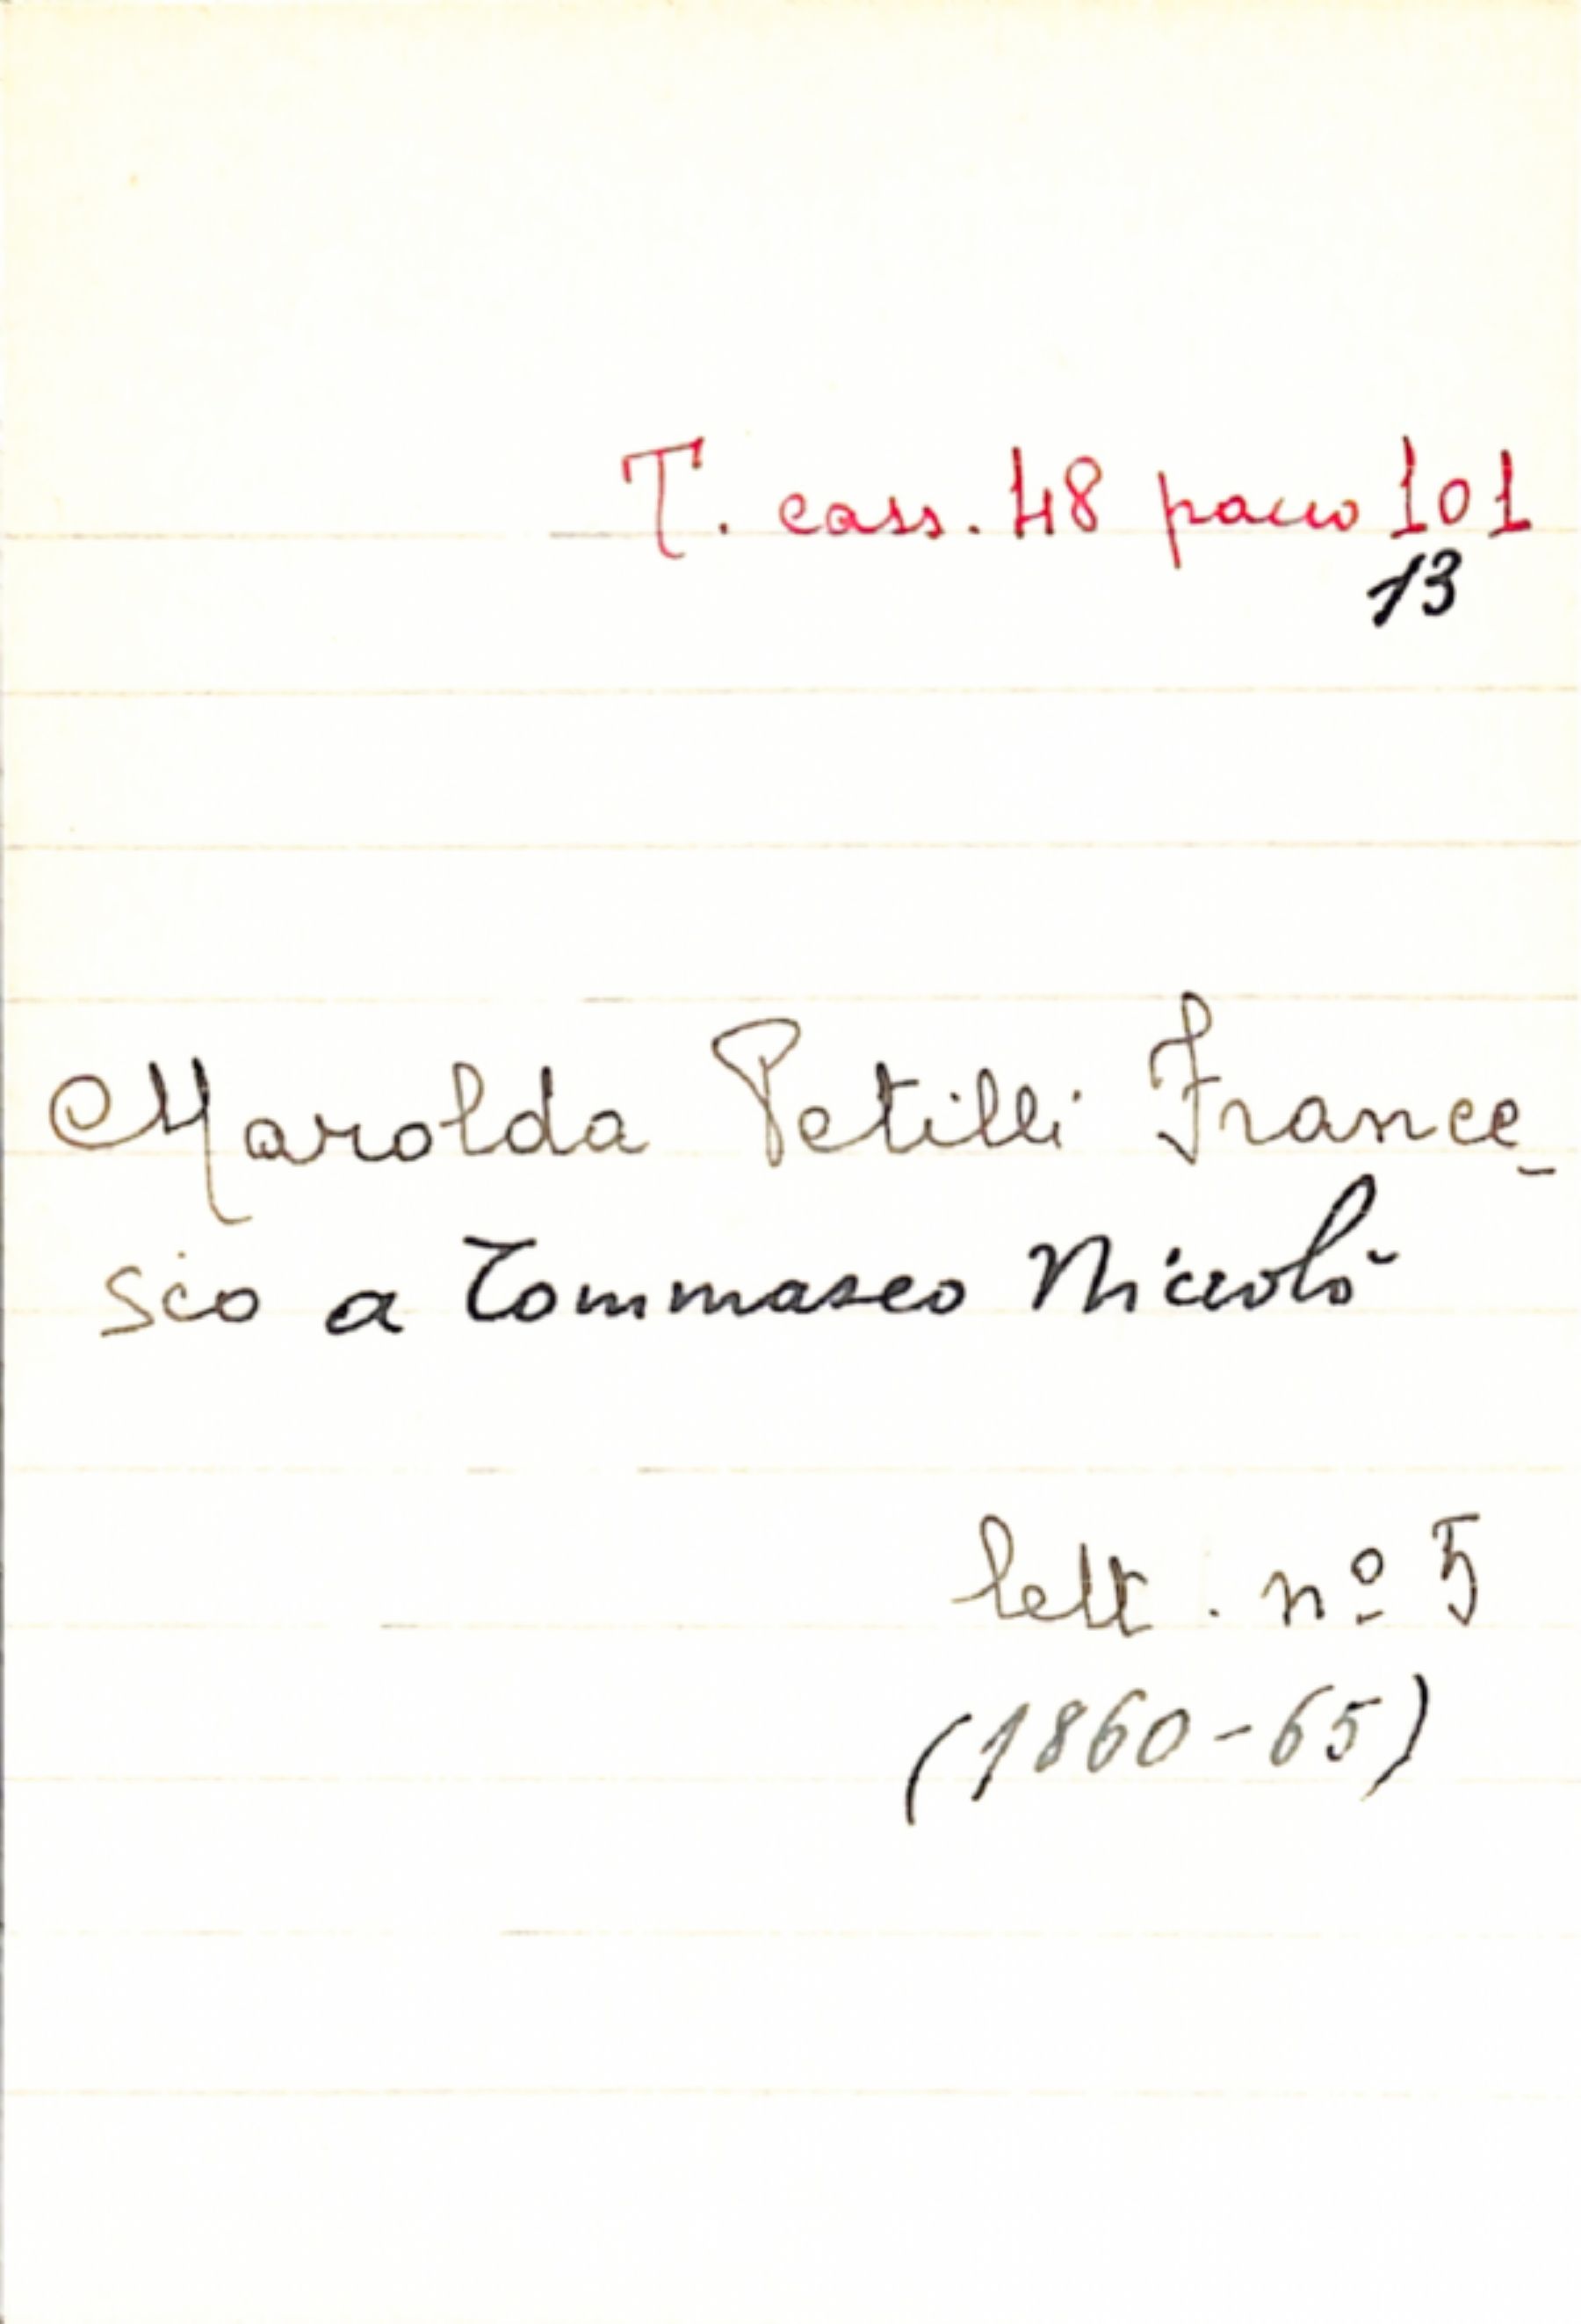 T. cass. 48 pacco 101
13
Marolda Petilli France_
sco a Tommaseo Niccolò
lett. nº 5
(1860-65)